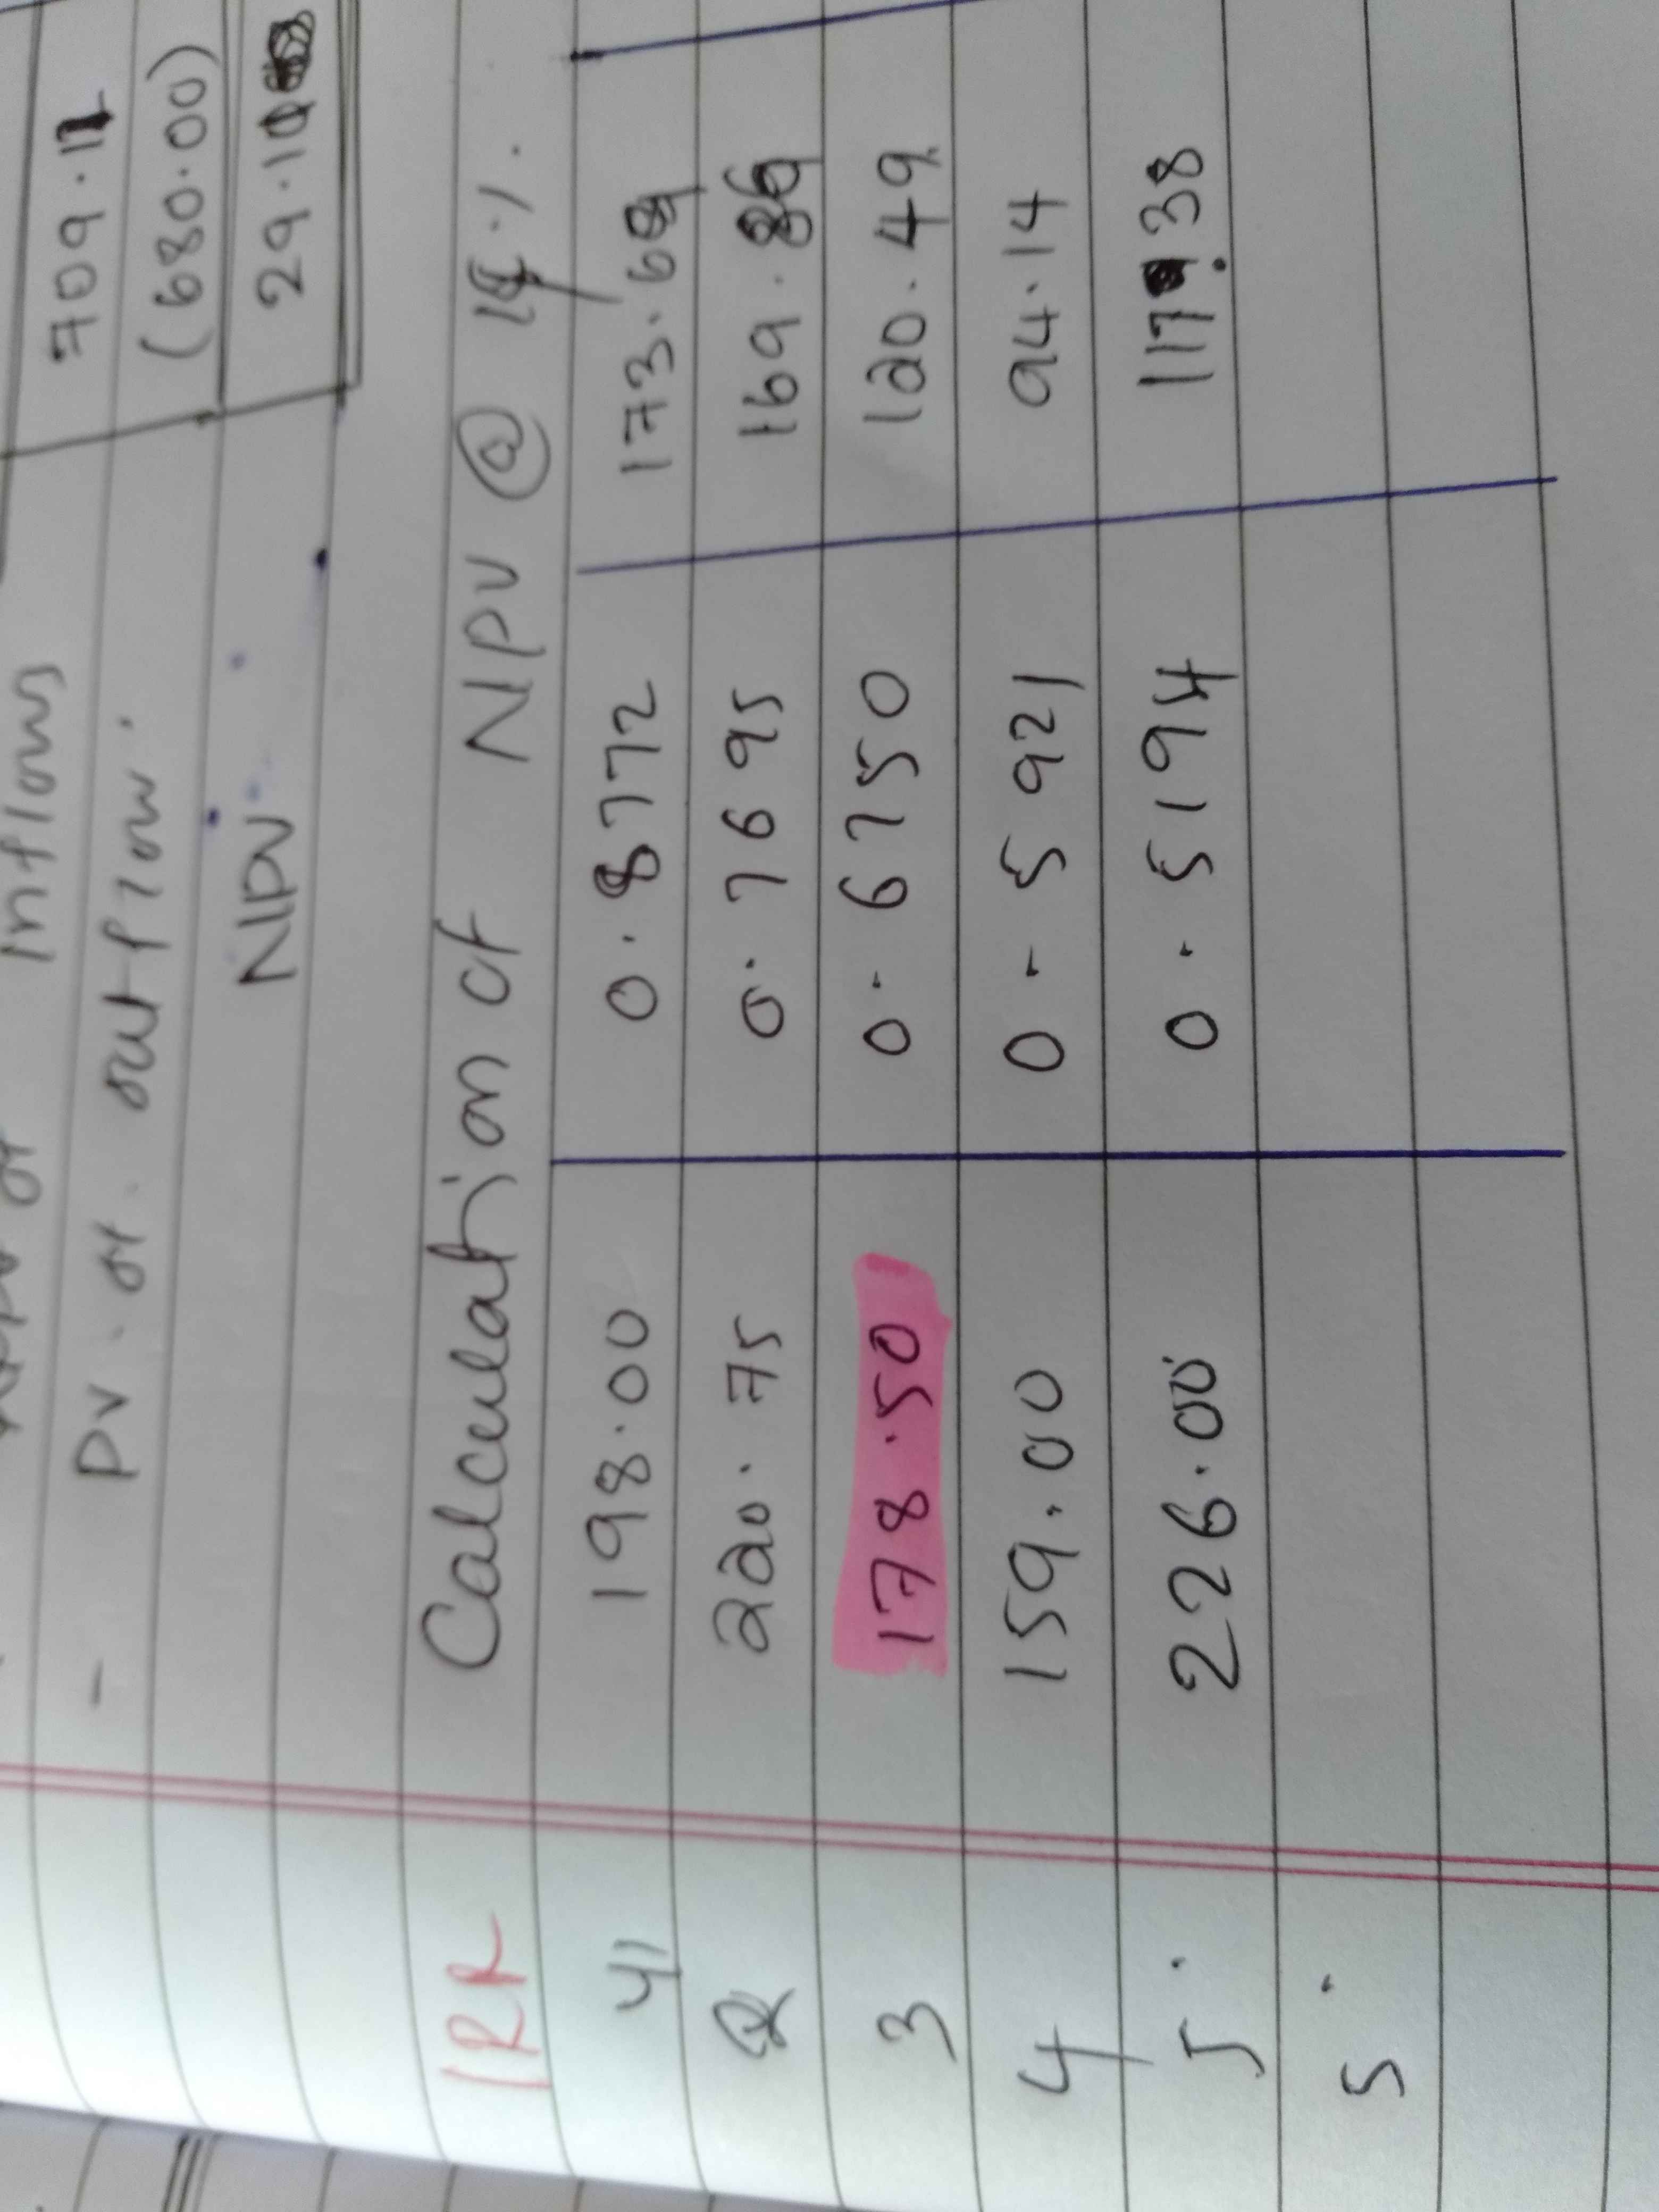 inflows 709.11
- PV. of. outflow. (680.00)
NPV 29.10
IRR Calculation of NPV @ 14%.
Y1 198.00 0.8772 173.69
2 220.75 0.7695 169.86
3 178.50 0.6750 120.49
4 159.00 0.5921 94.14
5. 226.00 0.5194 117.38
5.